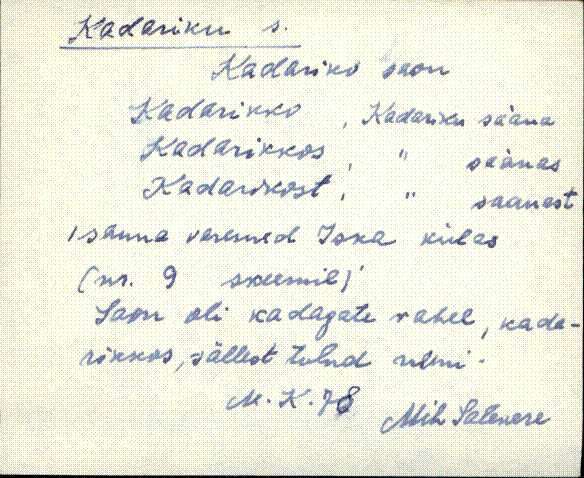 Kadariku s.
Kadariko saon
Kadarikko, Kadariku sääna
Kadarikkos, " säänas
Kadarikost, " säänast
'sauna varemed Iska külas
(nr. 9 skeemil)'
Saon oli kadagate vahel, kada-
rikkos, sellest tulnd nimi.
M. K. 78